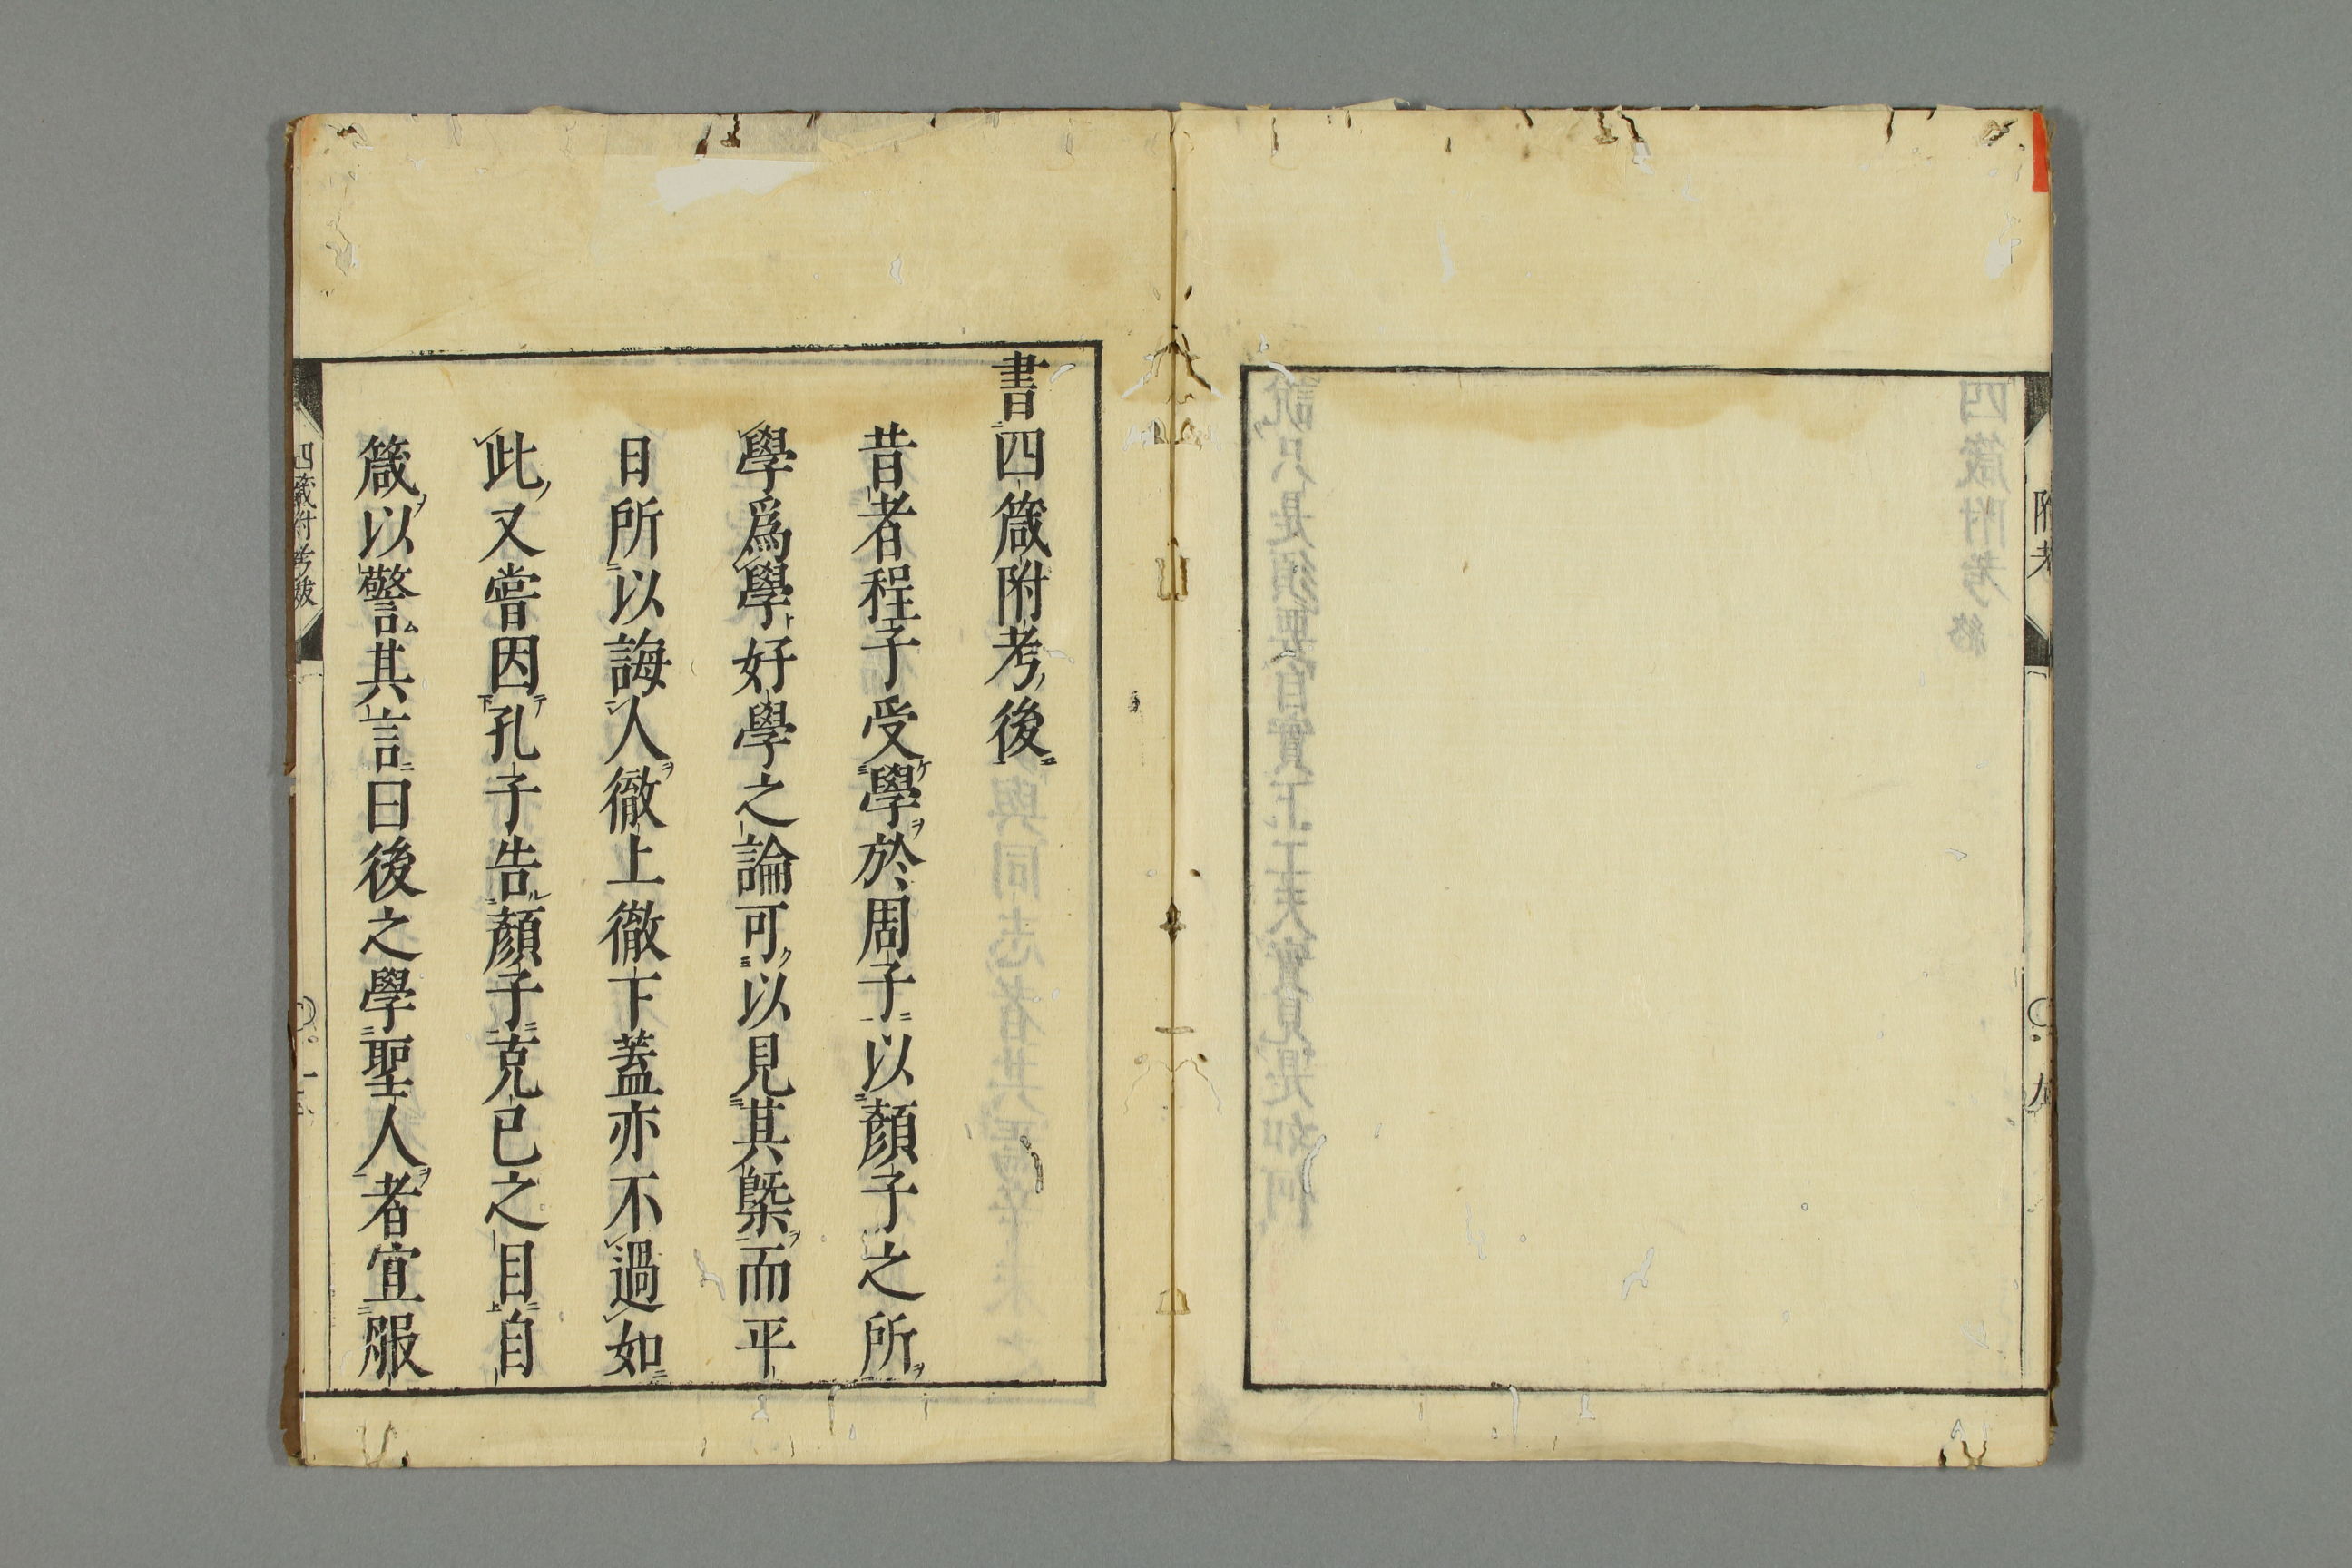 附考
書四箴附考後
昔者程子受學於周子以顏子之所
學爲學好學之論可以見其槩而平
日所以誨人徹上徹下蓋亦不過如
此又嘗因孔子告顏子克己之目自
箴以警其言曰後之學聖人者宜服
四箴附考跋